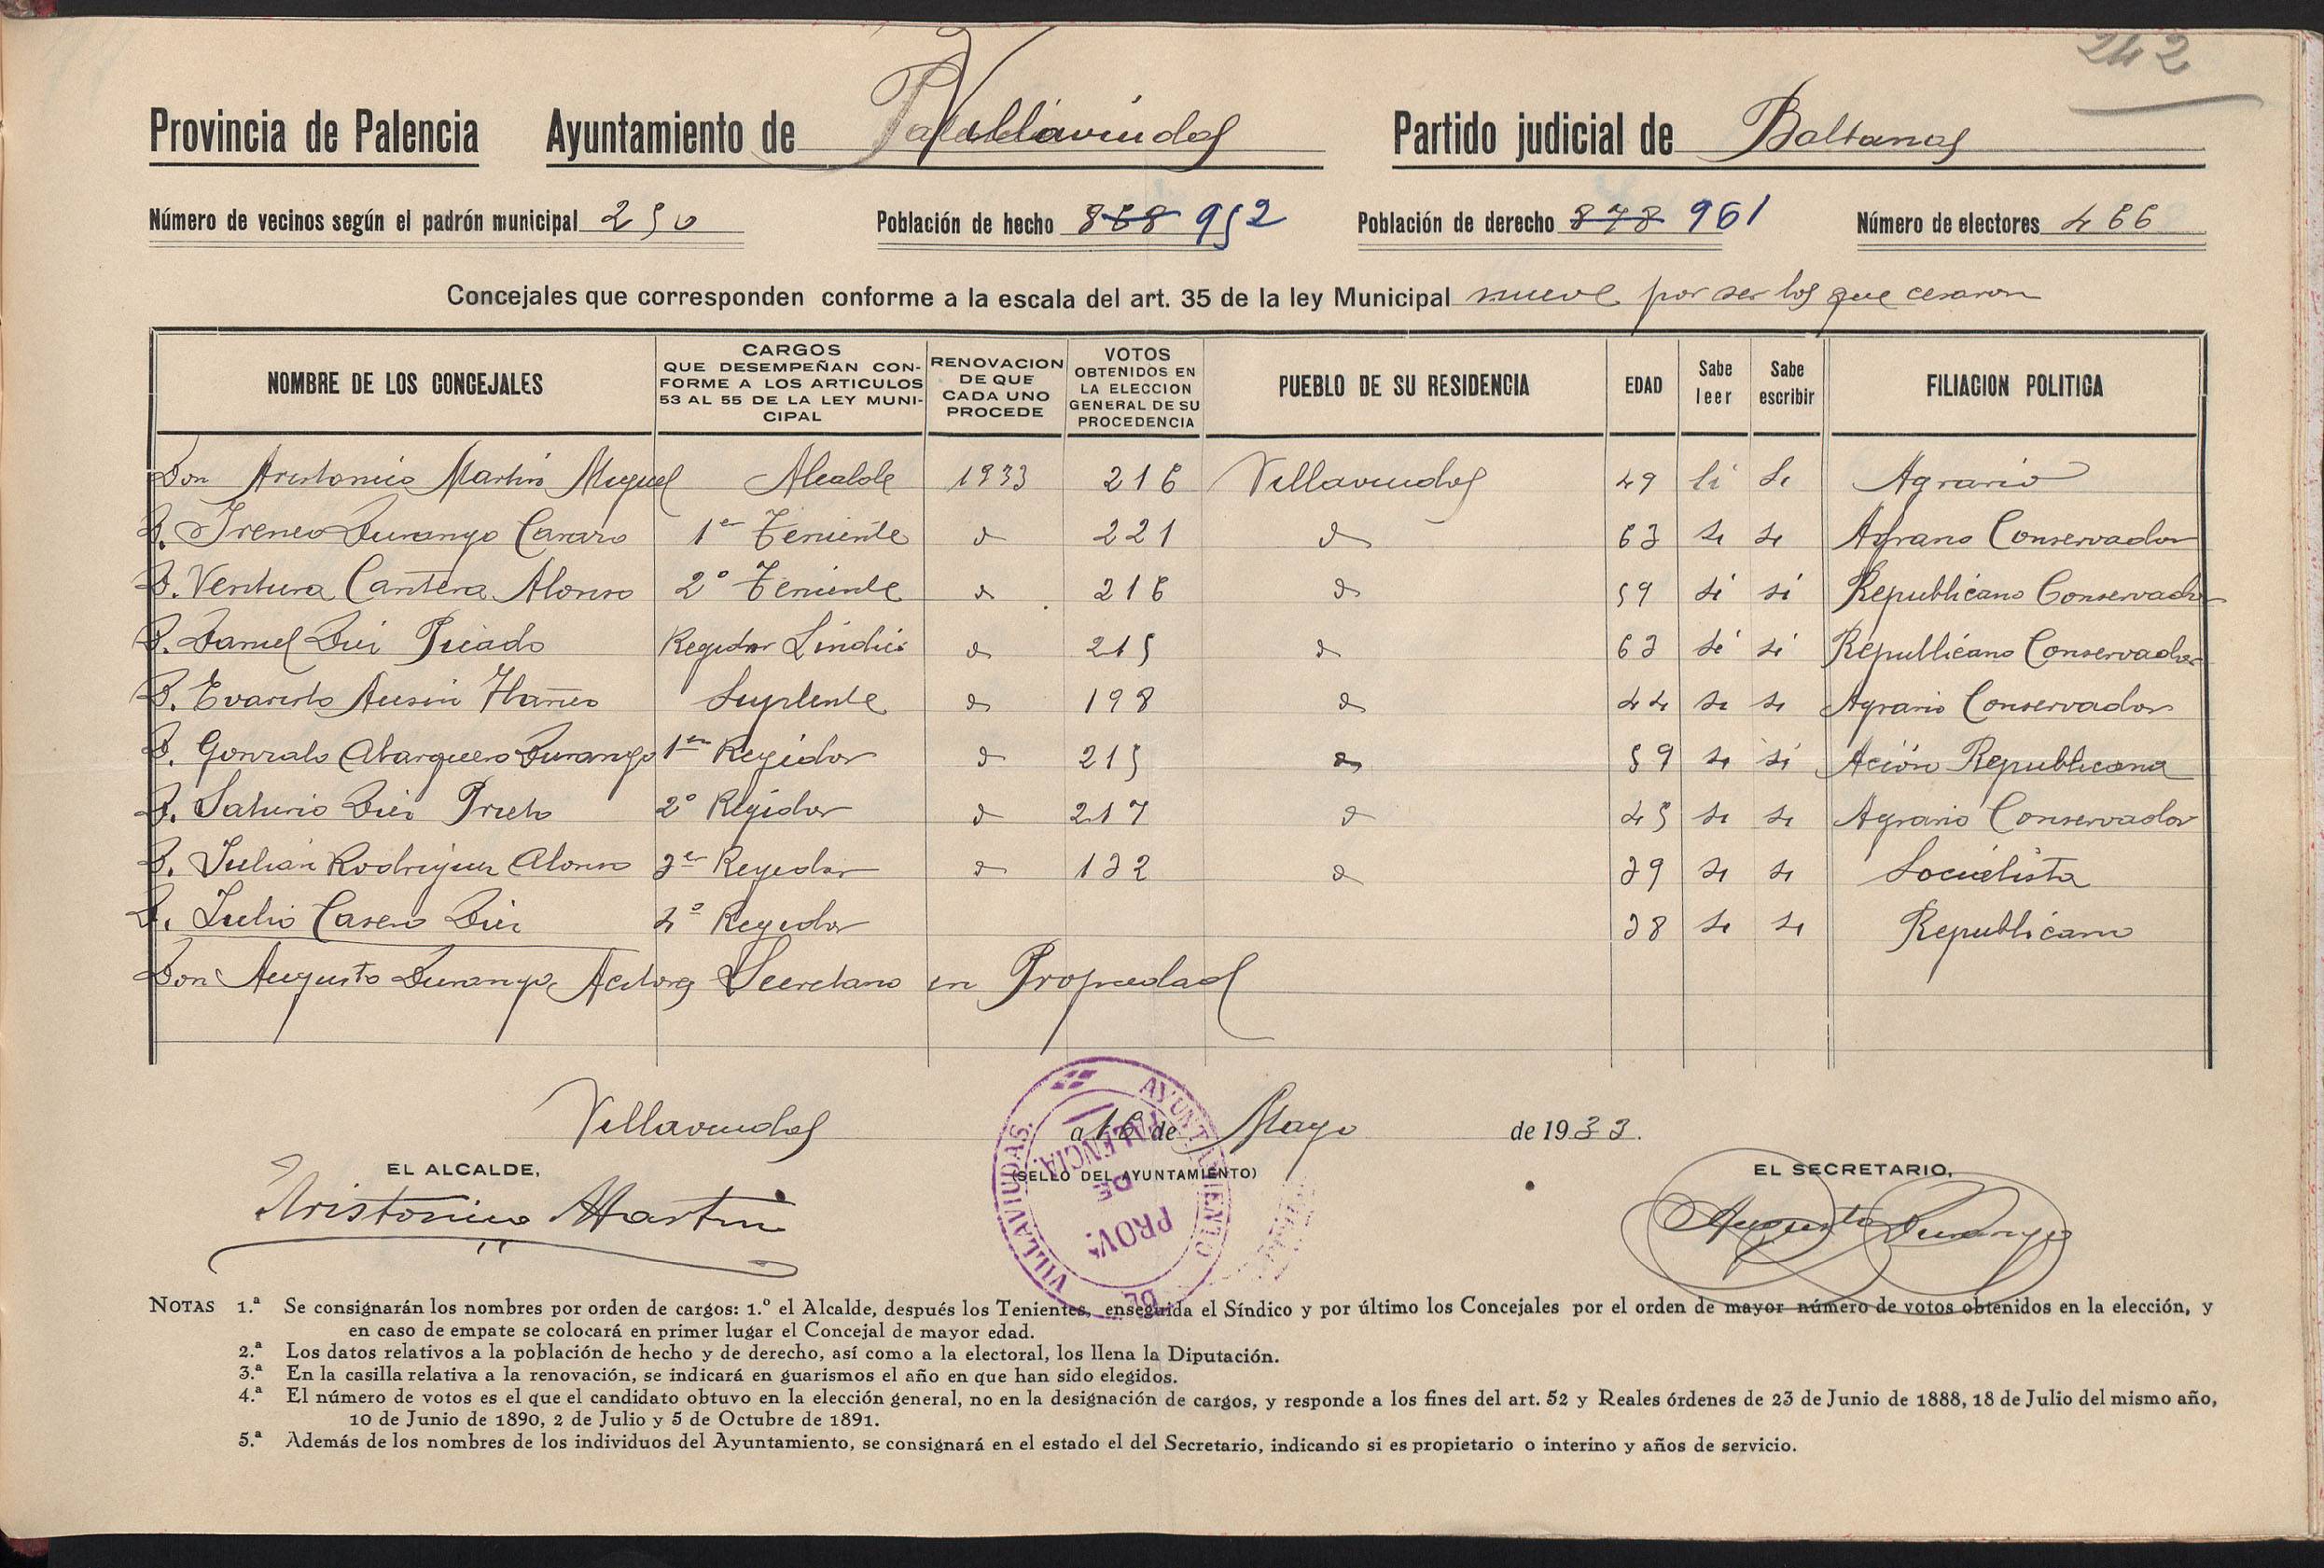 242
Provincia de Palencia Ayuntamiento de Villaviudas Partido judicial de Baltanas
Número de vecinos según el padrón municipal 250 Población de hecho 868 952 Población de derecho 878 961 Número de electores 466
Concejales que corresponden conforme a la escala del art. 35 de la ley Municipal nueve por ser los que cesaron
NOMBRE DE LOS CONCEJALES
CARGOS
QUE DESEMPEÑAN CON-
FORME A LOS ARTICULOS
53 AL 55 DE LA LEY MUNI-
CIPAL
RENOVACION
DE QUE
CADA UNO
PROCEDE
VOTOS
OBTENIDOS EN
LA ELECCION
GENERAL DE SU
PROCEDENCIA
PUEBLO DE SU RESIDENCIA
EDAD
Sabe
leer
Sabe
escribir
FILIACION POLITICA
Don Aristonico Martin Miguel Alcalde 1933 216 Villaviudas 49 si si Agrario
D. Ireneo Durango 1er Teniente d 221 d 63 si si Agrario Conservador
D. Ventura Cantera Alonso 2º Teniente d 216 d 59 si si Republicano Conservador
D. Daniel Diez Regidor Sindico d 215 d 63 si si Republicano Conservador
D. Evaristo Ausin Ibañes Suplente d 198 d 44 si si Agrario Conservador
D. Gonzalo Abarquero Durango 1er Regidor d 215 d 59 si si Ación Republicana
D. Saturio Diez Prieto 2º Regidor d 217 d 45 si si Agrario Conservador
D. Julian Rodriguez Alonso 3er Regidor d 132 d 39 si si Socialista
D. Julio Casero Diez 4º Regidor 38 si si Republicano
Don Augusto Durango Secretario en Propiedad
Villaviudas a 16 de Mayo de 1933.
EL ALCALDE,
(SELLO DEL AYUNTAMIENTO)
EL SECRETARIO,
Aristonico Martin
AYUNTAMIENTO DE VILLAVIUDAS.
PROVª DE PALENCIA.
Augusto Durango
NOTAS 1.ª Se consignarán los nombres por orden de cargos: 1.º el Alcalde, después los Tenientes, enseguida el Síndico y por último los Concejales por el orden de mayor número de votos obtenidos en la elección, y
en caso de empate se colocará en primer lugar el Concejal de mayor edad.
2.ª Los datos relativos a la población de hecho y de derecho, así como a la electoral, los llena la Diputación.
3.ª En la casilla relativa a la renovación, se indicará en guarismos el año en que han sido elegidos.
4.ª El número de votos es el que el candidato obtuvo en la elección general, no en la designación de cargos, y responde a los fines del art. 52 y Reales órdenes de 23 de Junio de 1888, 18 de Julio del mismo año,
10 de Junio de 1890, 2 de Julio y 5 de Octubre de 1891.
5.ª Además de los nombres de los individuos del Ayuntamiento, se consignará en el estado el del Secretario, indicando si es propietario o interino y años de servicio.